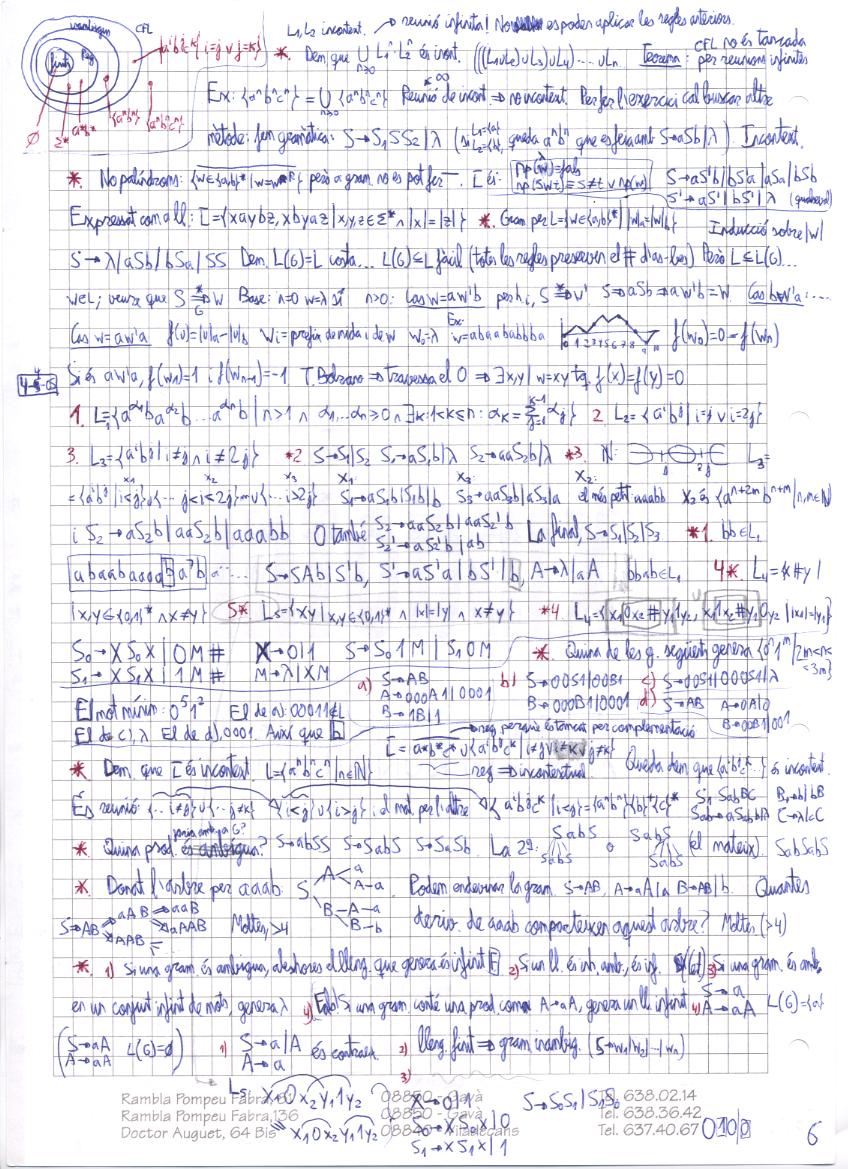 inambigu CFL
{aⁱbʲcᵏ | i=j ∨ j=k}
finits Reg
∅ Σ* a*b* {aⁿbⁿ} {aⁿbⁿcⁿ}
L₁, L₂ incontext. → reunió infinita! No es poden aplicar les regles anteriors.
* Dem que ∪ L₁ⁿ·L₂ⁿ és incont. (((L₁∪L₂)∪L₃)∪L₄)···∪Lₙ Teorema: CFL no és tancada per reunions infinites
n≥0
Ex: {aⁿbⁿcⁿ} = ∪ {aⁿbⁿcⁿ} Reunió de incont ⇒ no incontext. Per fer l'exercici cal buscar altre
mètode: fem gramàtica: S→S₁SS₂|λ (si L₁={a} L₂={b}, queda aⁿbⁿ que es feia amb S→aSb|λ). Incontext.
* No palíndroms: {w∈{a,b}* | w=wᴿ} però a gram. no es pot fer ¯. L és: np(λ)=fals np(swt)=s≠t ∨ np(w) S→aS'b|bS'a|aSa|bSb
S'→aS'|bS'|λ (qualsevol)
Expressat com a ll: L={xaybz, xbyaz | x,y,z∈Σ* ∧ |x|=|z|} * Gram per L={w∈{a,b}* | |w|a=|w|b} Inducció sobre |w|
S→λ|aSb|bSa|SS Dem. L(G)=L costa... L(G)⊆L fàcil (totes les regles preserven el # d'as-bes) Però L⊆L(G)...
w∈L; veure que S ⇒* w Base: n=0 w=λ sí n>0: Cas w=aw'b per h.i, S ⇒* w' S⇒aSb⇒aw'b=w. Cas bw'a:...
G
Cas w=aw'a f(u)=|u|a-|u|b wᵢ=prefix de mida i de w w₀=λ Ex: w=abaababbba 0 1 2 3 4 5 6 7 8 9 f(w₀)=0=f(wₙ)
Si és aw'a, f(w₁)=1 i f(wₙ₋₁)=-1 T. Bolzano ⇒ travessa el 0 ⇒ ∃x,y | w=xy tq. f(x)=f(y)=0
1. L₁={a^α₁ba^α₂b...a^αₙb | n>1 ∧ α₁,...αₙ≥0 ∧ ∃k: 1<k≤n: αₖ=Σαⱼ} 2. L₂={aⁱbʲ | i=j ∨ i=2j}
3. L₃={aⁱbʲ | i≠j ∧ i≠2j} *2 S→S₁|S₂ S₁→aS₁b|λ S₂→aaS₂b|λ *3. N: j 2j L₃=
x₁ x₂ x₃ X₁: X₃: X₂:
={aⁱbʲ | i<j}∪{... j<i<2j}∪{... i>2j} S₁→aS₁b|S₁b|b S₃→aaS₃b|aS₃|a el més petit aaabb X₂ és {aⁿ⁺²ᵐbⁿ⁺ᵐ | n,m∈N}
i S₂→aS₂b|aaS₂b|aaabb O també S₂→aaS₂b|aaS₂'b S₂'→aS₂'b|ab La final, S→S₁|S₂|S₃ *1. bb∈L₁
S→SAb|S'b, S'→aS'a|bS'|b, A→λ|aA bbab∈L₁ 4*. L₄={x#y |
|x,y∈{0,1}* ∧ x≠y} 5* L₅={xy | x,y∈{0,1}* ∧ |x|=|y| ∧ x≠y} *4. L₄={x₁0x₂#y₁1y₂, x₁1x₂#y₁0y₂ | |x₁|=|y₁|}
S₀→XS₀X|0M# X→0|1 S→S₀1M|S₁0M * Quina de les g. següents genera {0ⁿ1ᵐ/2m≤n≤3m}
S₁→XS₁X|1M# M→λ|XM
a) S→AB A→000A1|0001 B→1B|1 b) S→00S1|00B1 B→000B1|0001 c) S→00S1|000S1|λ d) S→AB A→0A|0 B→00B1|001
El mot mínim: 0⁵1² El de a): 00011∉L
El de c), λ El de d), 0001. Així que b
reg perquè és tancat per complementació
L = a*b*c* ∪ {aⁱbʲcᵏ | i≠j ∨ i≠k ∨ j≠k}
* Dem. que L és incontext. L={aⁿbⁿcⁿ | n∈N} reg ⇒ incontextual Queda dem que {aⁱbʲcᵏ...} és incontext.
És reunió: {... i≠j}∪{... j≠k} {i<j}∪{i>j}, el mat. per l'altre {aⁱbʲcᵏ | i<j}={aⁿbⁿ}{b}⁺{c}* S₁→SabBC B→b|bB
Sab→aSabb|λ C→λ|cC
* Quina prod. faria ambigua G? S→abSS S→SabS S→SaSb. La 2ª: SabS SabS o SabS SabS (el mateix). SabSabS
* Donat l'arbre per aaab: S A a A-a B-A-a B-b Podem endevinar la gram. S→AB, A→aA|a B→AB|b. Quantes
S→AB aAB AAB aaB aAAB Moltes, >4 deriv. de aaab comparteixen aquest arbre? Moltes (>4)
* 1) Si una gram. és ambigua, aleshores el lleng. que genera és infinit F 2) Si un ll. és inh. amb., és inf. 3) Si una gram. és amb.
en un conjunt infinit de mots, genera λ 4) Si una gram. conté una prod. com A→aA, genera un ll. infinit 4) S→a A→aA L(G)={a}
(S→aA A→aA L(G)=∅) 1) S→a|A A→a és contraex. 2) lleng. finit ⇒ gram inambig. (S→w₁|w₂|...|wₙ)
3)
L₅: x₁0x₂y₁1y₂ X→0|1 S→S₀S₁|S₁S₀
x₁0x₂y₁1y₂ S₀→XS₀X|0
S₁→XS₁X|1
Rambla Pompeu Fabra, 08850 - Gavà Tel. 638.02.14
Rambla Pompeu Fabra,136 08850 - Gavà Tel. 638.36.42
Doctor Auguet, 64 Bis 08840 - Viladecans Tel. 637.40.67
6